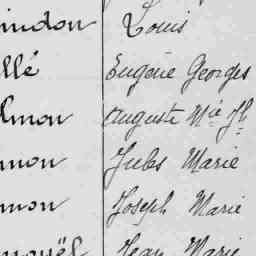 indon Louis
llé Eugène Georges
lmon Auguste Mie Jh
mon Jules Marie
mon Joseph Marie
nouël Jean Marie